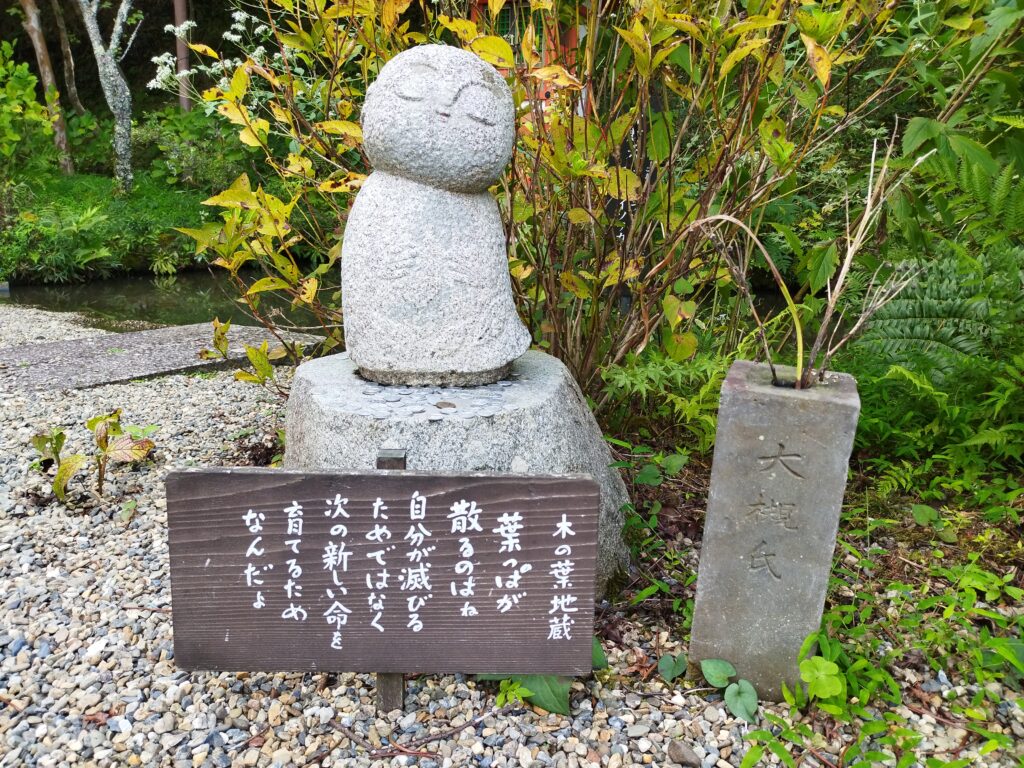 木の葉地蔵
葉っぱが
散るのはね
自分が滅びる
ためではなく
次の新しい命を
育てるため
なんだよ
大槻氏